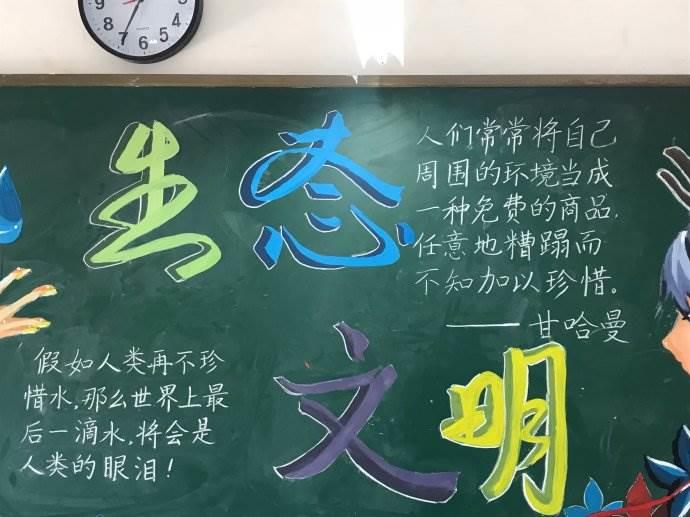 生态
人们常常将自己
周围的环境当成
一种免费的商品,
任意地糟蹋而
不知加以珍惜。
——甘哈曼
文明
假如人类再不珍
惜水,那么世界上最
后一滴水,将会是
人类的眼泪!